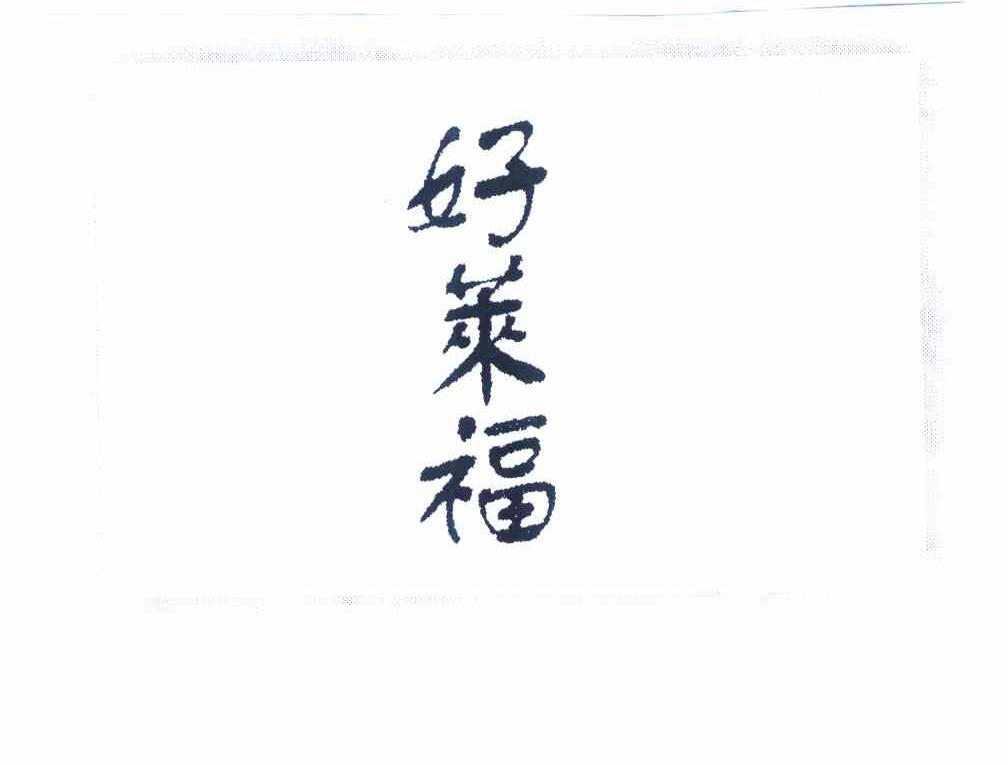 好萊福